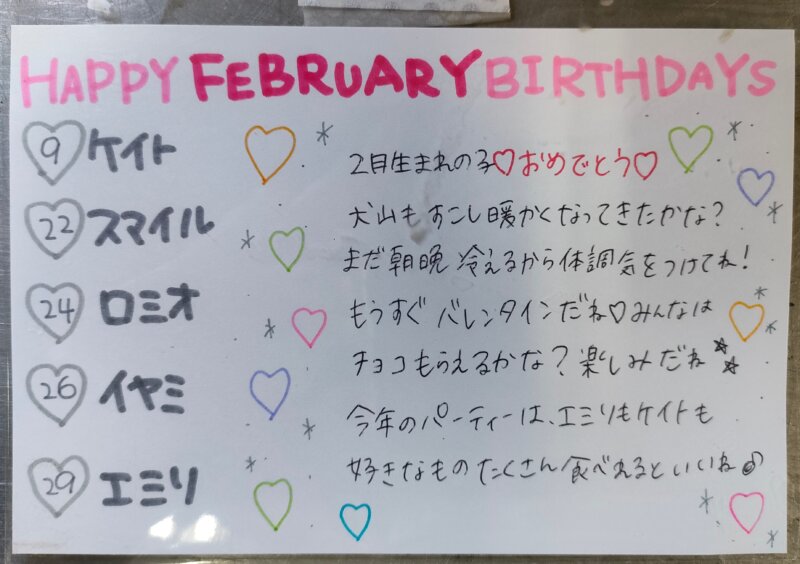 HAPPY FEBRUARY BIRTHDAYS
9 ケイト
22 スマイル
24 ロミオ
26 イヤミ
29 エミリ
2月生まれの子♡おめでとう♡
犬山もすこし暖かくなってきたかな?
まだ朝晩冷えるから体調気をつけてね!
もうすぐバレンタインだね♡みんなは
チョコもらえるかな?楽しみだね☆☆
今年のパーティーは、エミリもケイトも
好きなものたくさん食べれるといいね♪